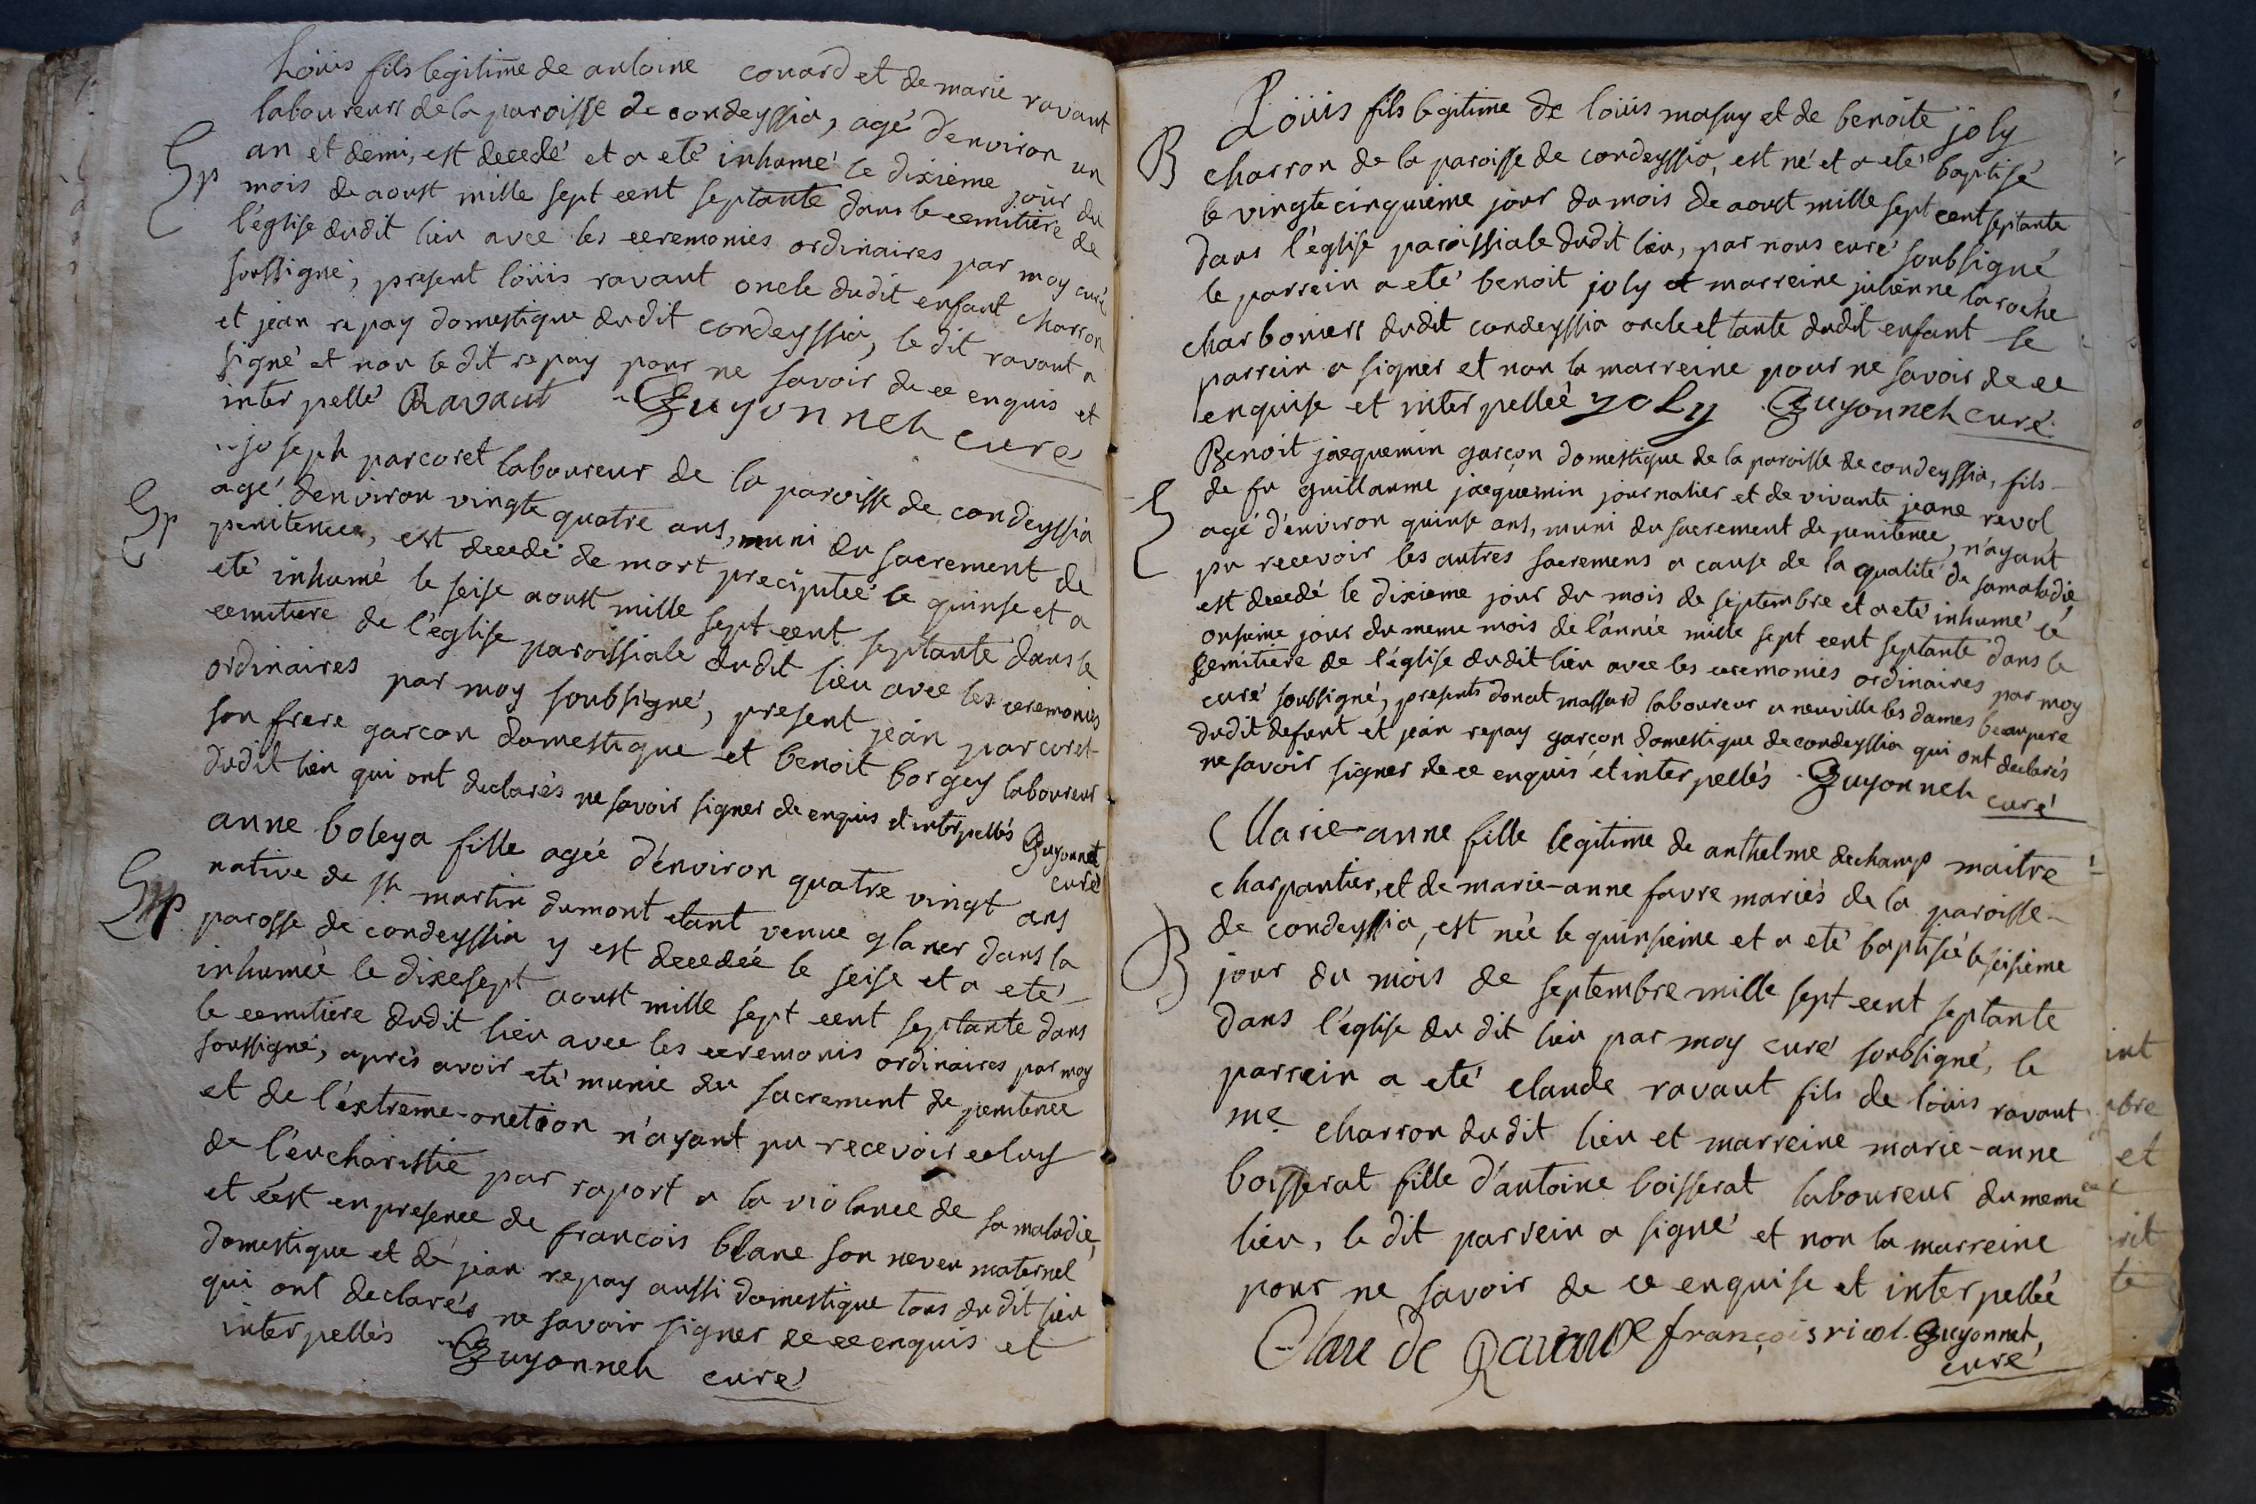 Loüis fils legitime de antoine couard et de marie ravaut
laboureurs de la paroisse de condeyssia, agé d'environ un
an et demi, est decedé et a eté inhumé le dixieme jour du
Sp
mois de aoust mille sept cent septante dans le cemitiere de
l'église dudit lieu avec les ceremonies ordinaires par moy curé
soussigné, present loüis ravaut oncle dudit enfant charron
et jean repay domestique dudit condeyssia, le dit ravaut a
signé et non le dit repay pour ne savoir de ce enquis et
interpellé Ravaut Guyonnet curé
joseph parcoret laboureur de la paroisse de condeyssia
Sp
agé d'environ vingte quatre ans, muni du sacrement de
penitence, est decedé de mort precipiteé le quinse et a
eté inhumé le seise aoust mille sept cent septante dans le
cemitiere de l'église paroissiale dudit lieu avec les ceremonies
ordinaires par moy soubsigné, present jean parcoret
son frere garcon domestique et benoit borgey laboureur
dudit lieu qui ont declarés ne savoir signer de enquis et interpellés Guyonnet
curé
anne boleya fille agée d'environ quatre vingt ans
Sp
native de st martin dumont etant venue glaner dans la
parosse de condeyssia y est decedée le seise et a eté
inhumée le dixesept aoust mille sept cent septante dans
le cemitiere dudit lieu avec les ceremonis ordinaires par moy
soussigné, après avoir eté munie du sacrement de penitence
et de l'extreme-onction n'ayant pu recevoir celuy
de l'eucharistie par raport a la violance de sa maladie,
et c'est en presence de francois blanc son neveu maternel
domestique et de jean repay aussi domestique tous dudit lieu
qui ont declarés ne savoir signer de ce enquis et
interpellés Guyonnet curé
Loüis fils legitime de loüis masuy et de benoite joly
B
charron de la paroisse de condeyssia, est né et a eté baptisé
le vingtecinquieme jour du mois de aoust mille sept cent septante
dans l'église paroissiale dudit lieu, par nous curé soubsigné
le parrein a eté benoit joly et marreine julienne laroche
charboniers dudit condeyssia oncle et tante dudit enfant le
parrein a signer et non la marreine pour ne savoir de ce
enquise et interpelleé joly Guyonnet curé
Benoit jacquemin garçon domestique de la paroisse de condeyssia, fils
S
de fu guillaume jacquemin journalier et de vivante jeane revol
agé d'environ quinse ans, muni du sacrement de penitence, n'ayant
pu recevoir les autres sacremens a cause de la qualité de sa maladie,
est decedé le dixieme jour du mois de septembre et a eté inhumé le
onsieme jour du meme mois de l'année mille sept cent septante dans le
cemitiere de l'église dudit lieu avec les ceremonies ordinaires par moy
curé soubsigné, presents donat massard laboureur a neuville les dames beaupere
dudit defunt et jean repay garcon domestique de condeyssia qui ont declarés
ne savoir signer de ce enquis et interpellés Guyonnet curé
Marie-anne fille legitime de anthelme dechamp maitre
charpantier, et de marie-anne favre mariés de la paroisse
B
de condeyssia, est née le quinsieme et a eté baptisée le seisieme
jour du mois de septembre mille sept cent septante
dans l'église du dit lieu par moy curé soubsigné, le
parrein a eté claude ravaut fils de loüis ravaut
me charron dudit lieu et marreine marie-anne
boisserat fille d'antoine boisserat laboureur du meme
lieu, le dit parrein a signé et non la marreine
pour ne savoir de ce enquise et interpellée
Claude Ravaut françois riol Guyonnet
curé